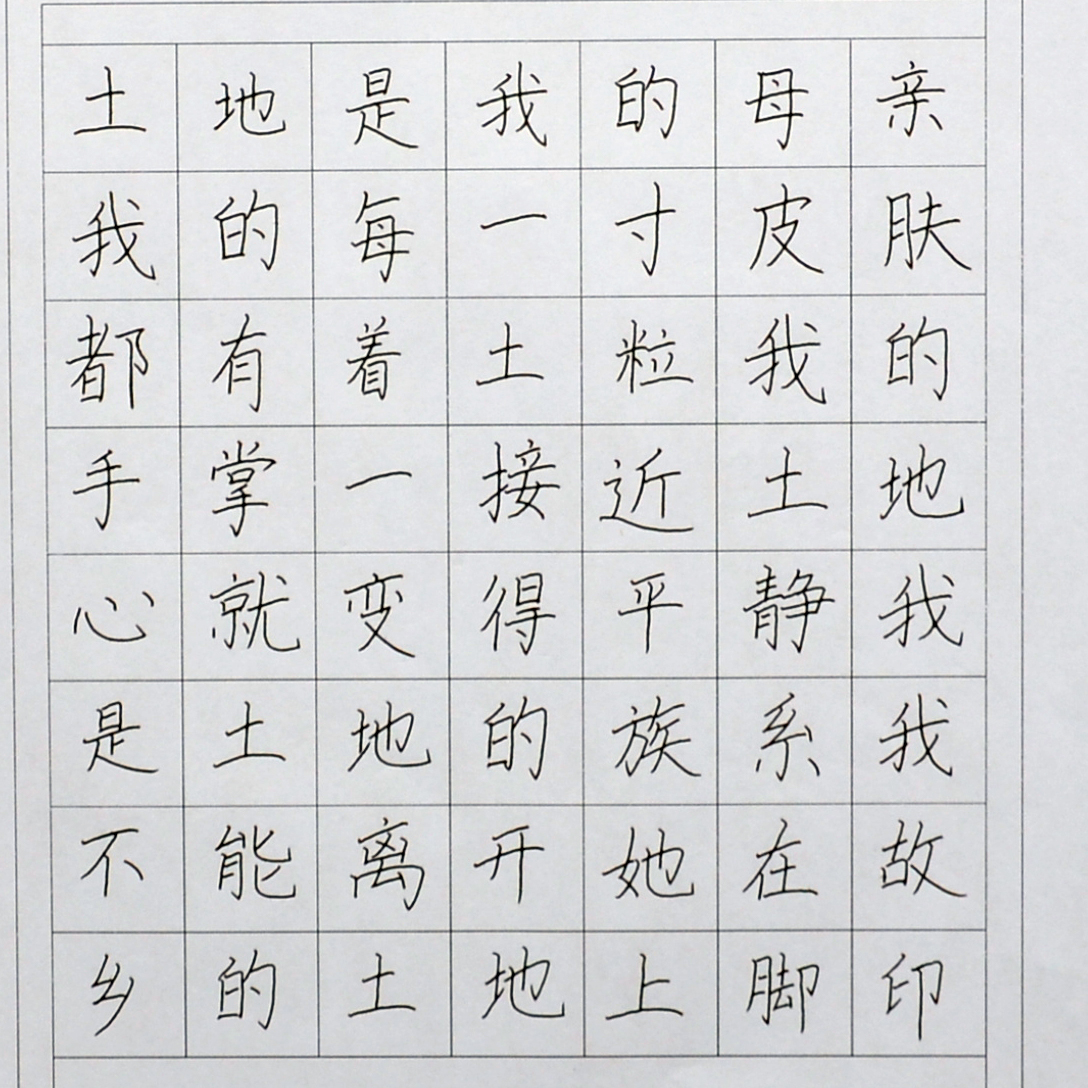 土地是我的母亲
我的每一寸皮肤
都有着土粒我的
手掌一接近土地
心就变得平静我
是土地的族系我
不能离开她在故
乡的土地上脚印